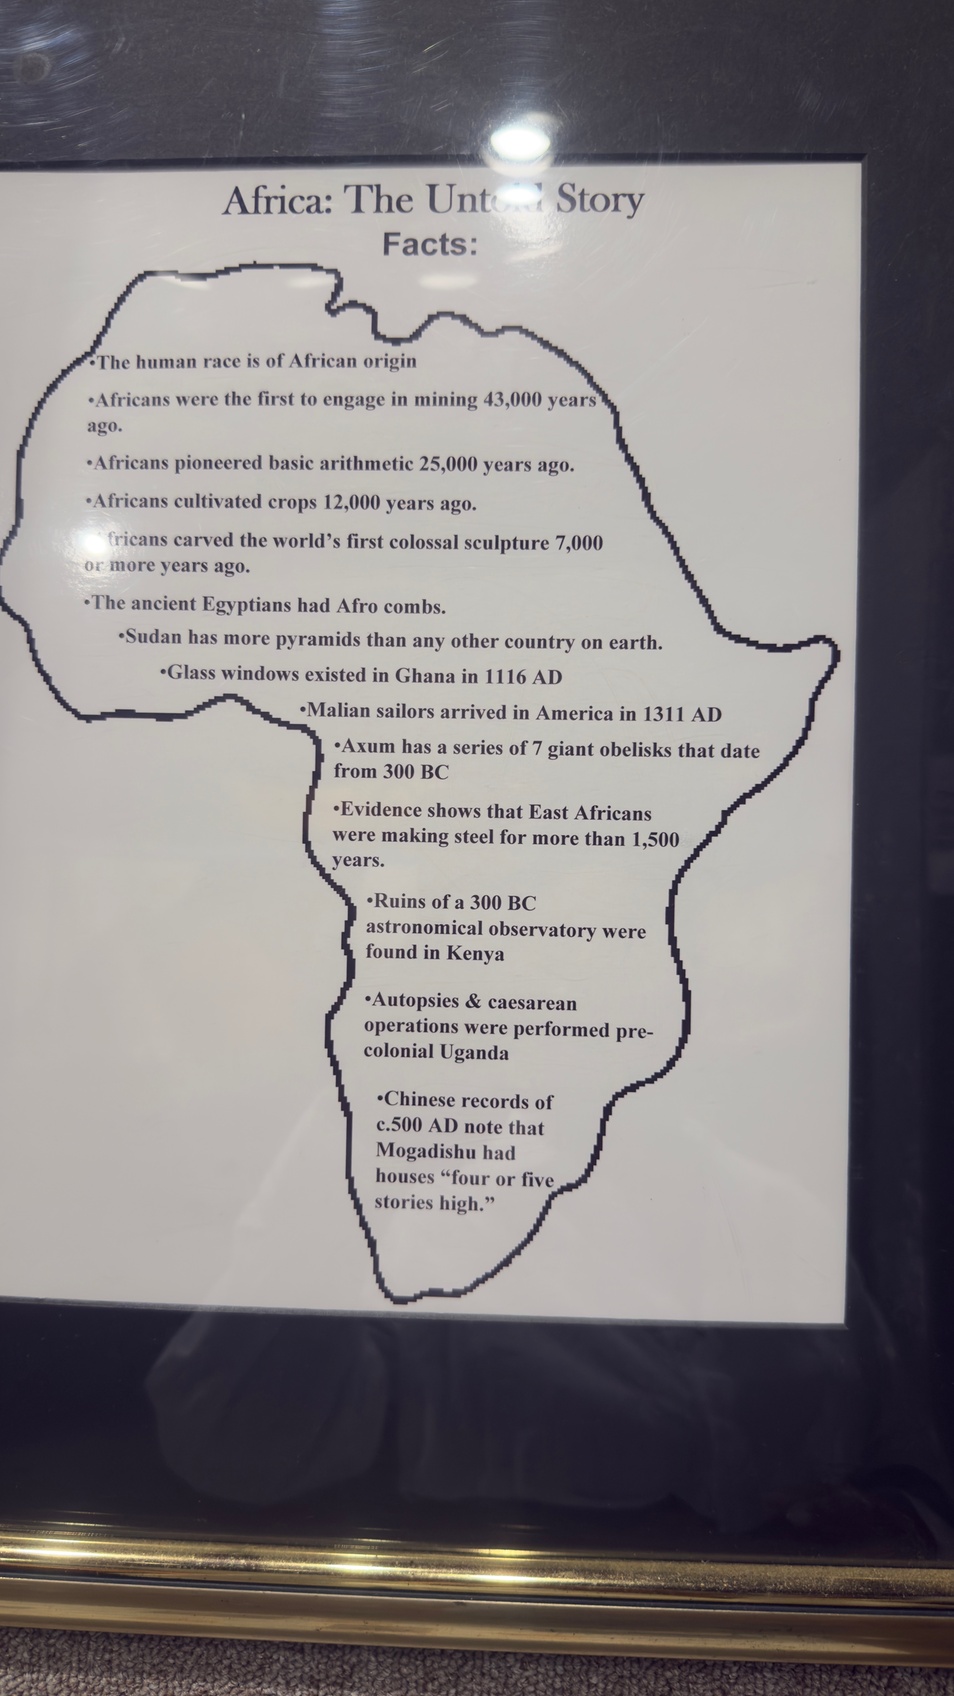 Africa: The Untold Story
Facts:
•The human race is of African origin
•Africans were the first to engage in mining 43,000 years
ago.
•Africans pioneered basic arithmetic 25,000 years ago.
•Africans cultivated crops 12,000 years ago.
Africans carved the world's first colossal sculpture 7,000
or more years ago.
•The ancient Egyptians had Afro combs.
•Sudan has more pyramids than any other country on earth.
•Glass windows existed in Ghana in 1116 AD
•Malian sailors arrived in America in 1311 AD
•Axum has a series of 7 giant obelisks that date
from 300 BC
•Evidence shows that East Africans
were making steel for more than 1,500
years.
•Ruins of a 300 BC
astronomical observatory were
found in Kenya
•Autopsies & caesarean
operations were performed pre-
colonial Uganda
•Chinese records of
c.500 AD note that
Mogadishu had
houses “four or five
stories high.”